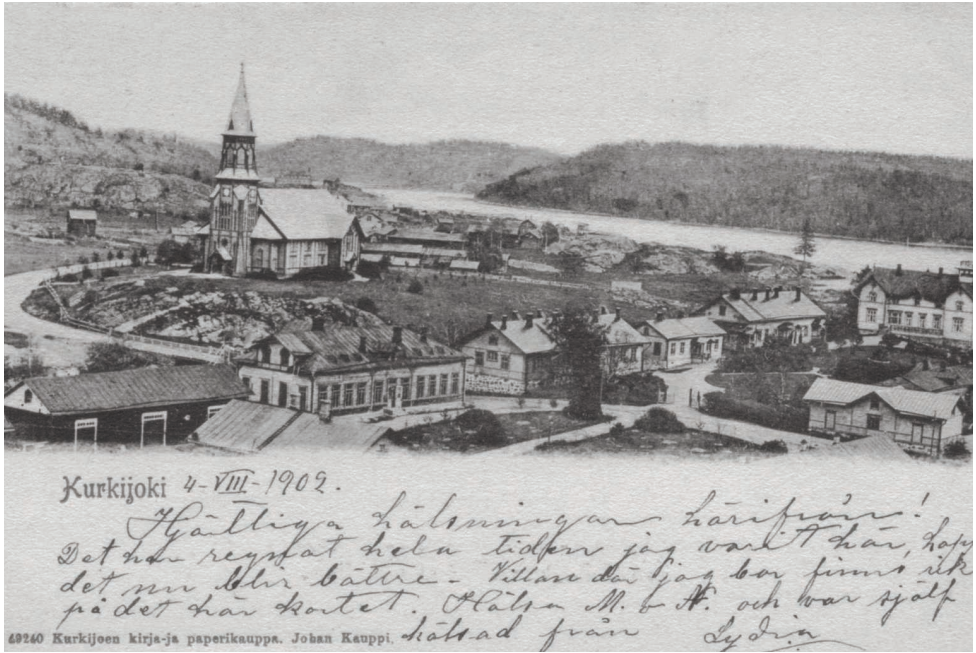 Kurkijoki 4-VIII-1902.
Hjärtliga hälsningar härifrån!
Det har regnat hela tiden jag varit här, hopp
det nu blir bättre - Villan där jag bor finns
på det här kortet. Hälsa M. o och var själf
hälsad från Lydia
49240 Kurkijoen kirja-ja paperikauppa. Johan Kauppi.